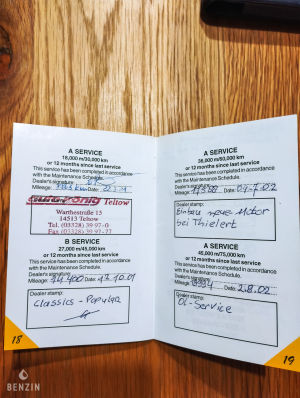 A SERVICE
18,000 m/30,000 km
or 12 months since last service
This service has been completed in accordance
with the Maintenance Schedule.
Dealer's signature
Mileage: Date:
Teltow
Warthestraße 15
14513 Teltow
Tel. (03328) 39 97-0
Fax (03328) 39 97-77
B SERVICE
27,000 m/45,000 km
or 12 months since last service
This service has been completed in accordance
with the Maintenance Schedule.
Dealer's signature
Mileage: 74 400 Date: 13.10.01
Dealer stamp:
Classics - Popular
18
A SERVICE
36,000 m/60,000 km
or 12 months since last service
This service has been completed in accordance
with the Maintenance Schedule.
Dealer's signature
Mileage: Date: 04.7.02
Dealer stamp:
Einbau neue Motor
bei Thielert
A SERVICE
45,000 m/75,000 km
or 12 months since last service
This service has been completed in accordance
with the Maintenance Schedule.
Dealer's signature
Mileage: Date: 2.8.02
Dealer stamp:
Öl-Service
19
BENZIN